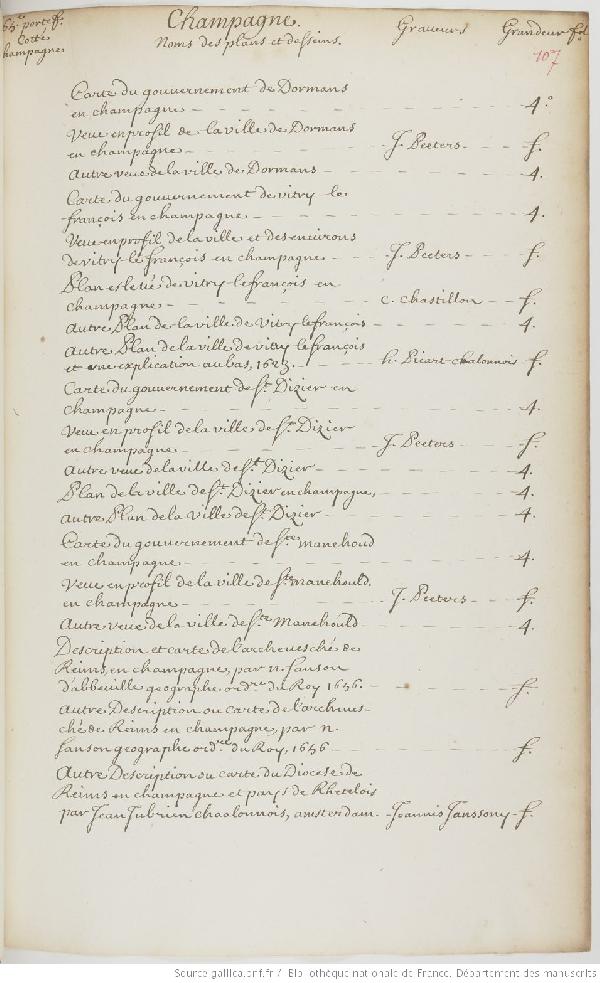 65.e portef.
Cotté
Champagne
Champagne.
Noms des plans et desseins.
Graveurs
Grandeur f.l
107
Carte du gouvernement de Dormans
en champagne 4.o
Veue en profil de la ville de Dormans
en champagne J. Peeters f.
Autre veue de la ville de Dormans 4.
Carte du gouvernement de vitry le
françois en champagne 4.
Veue en profil de la ville et des environs
de vitry le françois en champagne J. Peeters f.
Plan eslevé de vitry le françois en
champagne c. chastillon f.
Autre Plan de la ville de Vitry le françois 4.
Autre Plan de la ville de vitry le françois
et une explication au bas, 1623. h. Picart chalonnois f.
Carte du gouvernement de St. Dizier en
champagne 4.
Veue en profil de la ville de St. Dizier
en champagne J. Peeters f.
Autre veue de la ville de St. Dizier 4.
Plan de la ville de St. Dizier en champagne, 4.
Autre Plan de la Ville de St. Dizier 4.
Carte du gouvernement de Ste. Manehoud
en champagne 4.
Veue en profil de la ville de Ste. Manehould.
en champagne J. Peeters f.
Autre veue de la ville de Ste. Manehould 4.
Description et carte de l'archevesché de
Reims, en champagne, par n. Sanson
d'abbeville geographe ord.re du Roy 1656. f.
Autre Description ou carte de l'archeves-
ché de Reims en champagne, par n.
Sanson geographe ord.re du Roy, 1656 f.
Autre Description ou carte du Diocese de
Reims en champagne et pays de Rhetelois
par Jean Jubrien chaalonnois, amsterdam. Joannis Janssony f.
Source gallica.bnf.fr / Bibliothèque nationale de France. Département des manuscrits